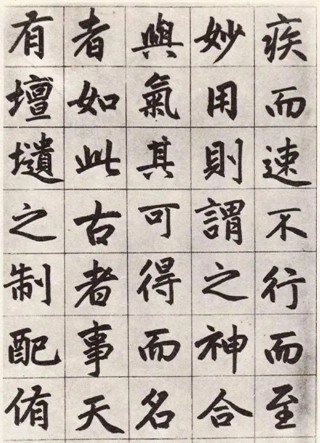 疾而速不行而至
妙用則謂之神合
與氣其可得而名
者如此古者事天
有壇壝之制配侑